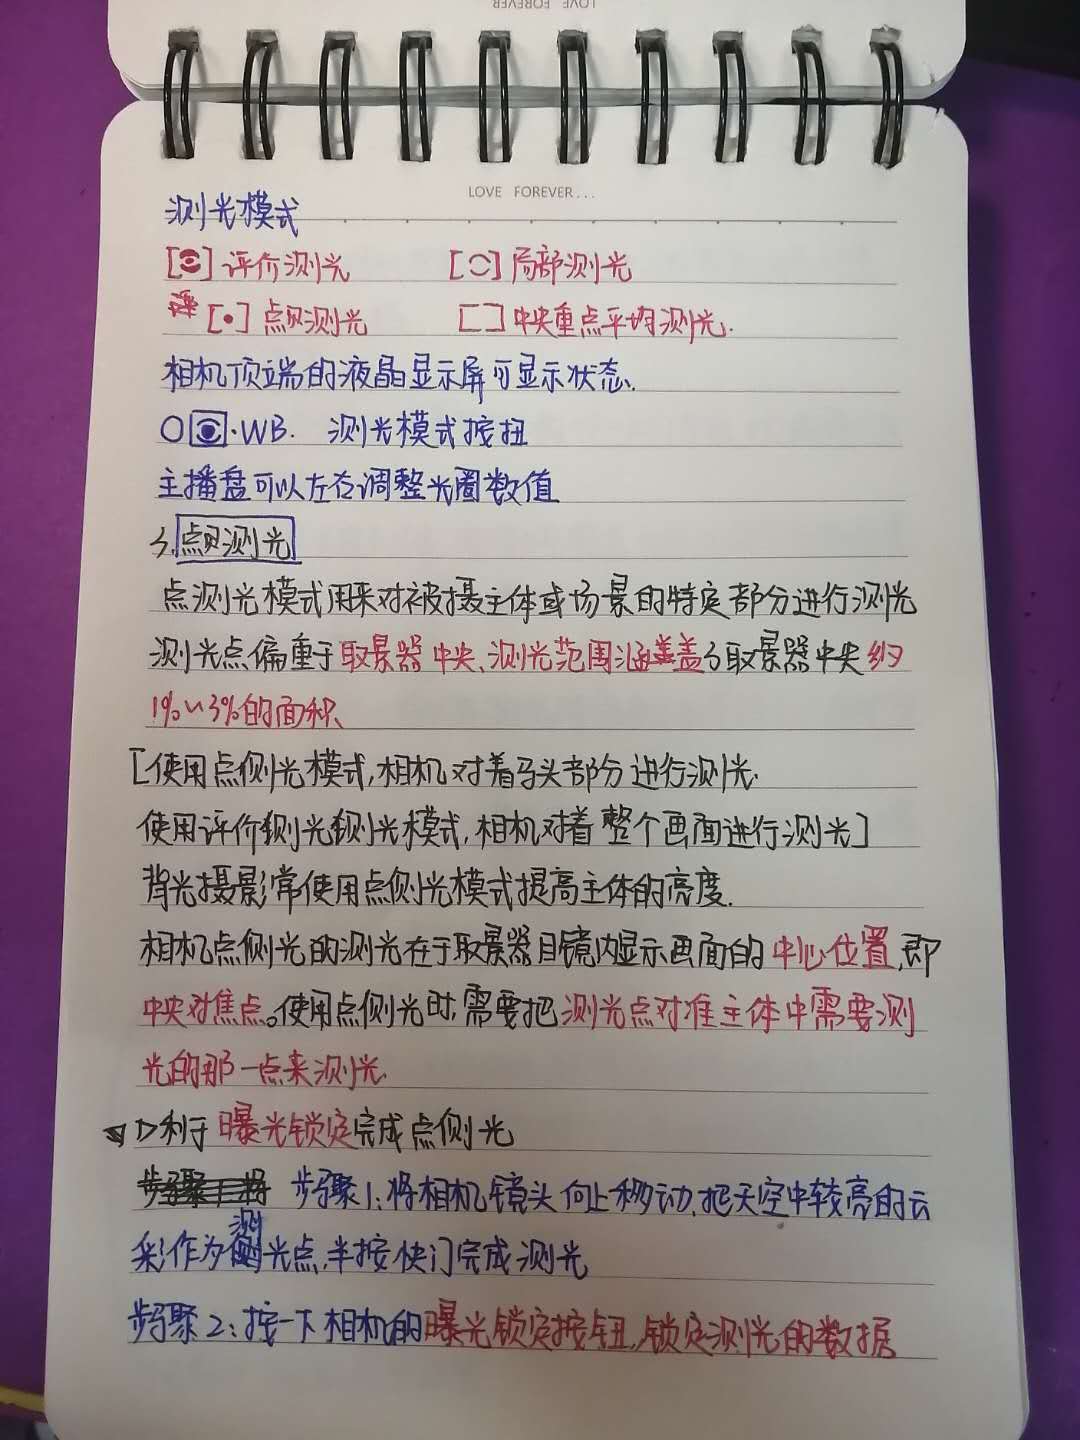 LOVE FOREVER
LOVE FOREVER...
测光模式
[ ] 评价测光 [ ] 局部测光
[•] 点测光 [ ] 中央重点平均测光.
相机顶端的液晶显示屏可显示状态.
·WB. 测光模式按扭
主播盘可以左右调整光圈数值
3.点测光
点测光模式用来对被摄主体或场景的特定部分进行测光
测光点偏重于取景器中央、测光范围涵盖了取景器中央约
1%~3%的面积、
[使用点侧光模式,相机对着马头部分进行测光.
使用评价测光模式,相机对着整个画面进行测光]
背光摄影常使用点侧光模式提高主体的亮度.
相机点侧光的测光在于取景器目镜内显示画面的中心位置,即
中央对焦点。使用点侧光时,需要把测光点对准主体中需要测
光的那一点来测光.
▷利于曝光锁定完成点侧光
步骤1:将相机镜头向上移动,把天空中较亮的云
彩作为测光点,半按快门完成测光
步骤2:按一下相机的曝光锁定按钮,锁定测光的数据